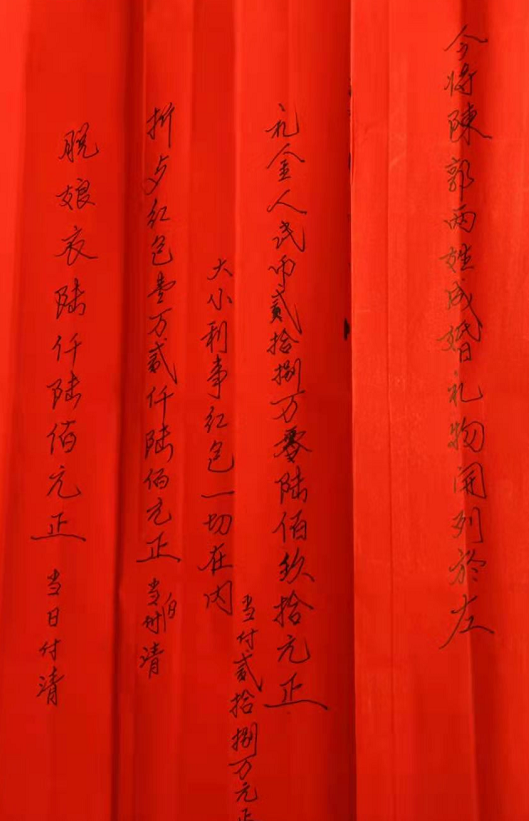 今将陳郭两姓成婚礼物開列於左
礼金人民币貳拾捌万零陆佰玖拾元正
当付貳拾捌万元正
大小利事红包一切在内
折夕红包壹万貳仟陆佰元正 当日付清
脱娘衣陆仟陆佰元正 当日付清